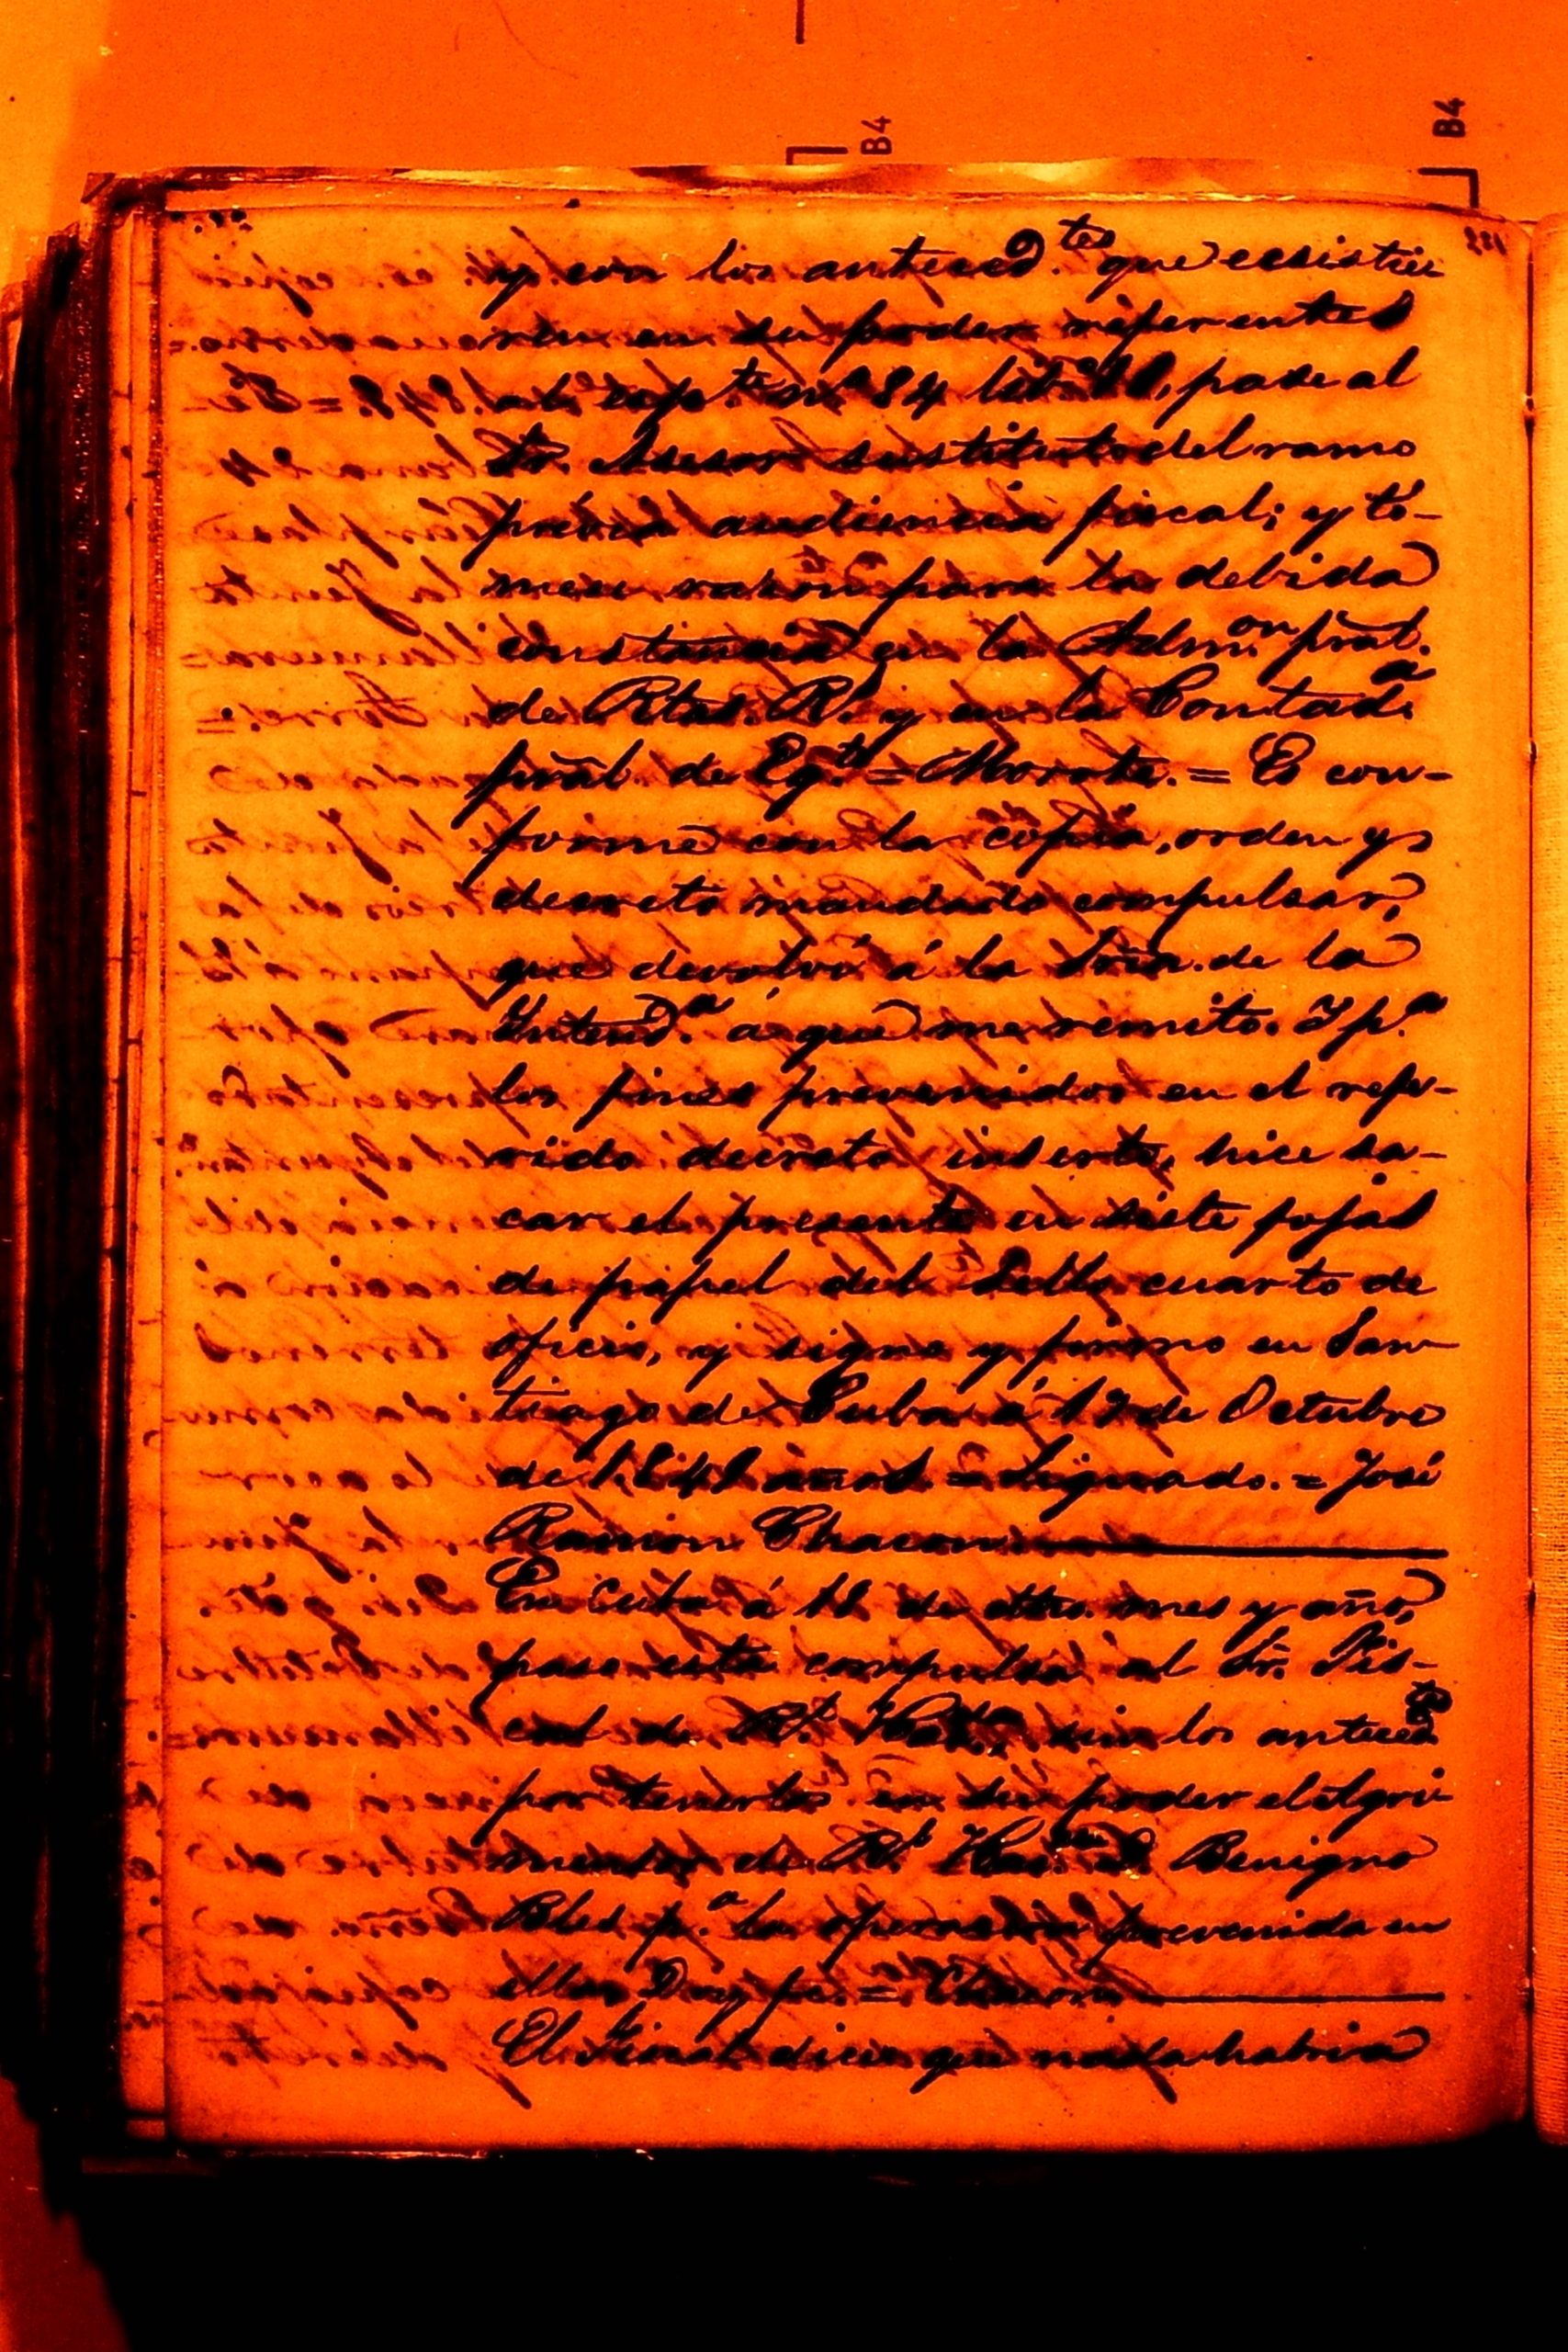 B4
B4
221
y con los anteced.tes que ecsistie
ren en su poder referentes
al esp.te nº 84 lib.º 10, pase al
Sr. Asesor sustituto del ramo
prévia audiencia fiscal; y tó-
mese razon para la debida
constancia en la Adm.on pral.
de Rtas. R.s y en la Contad.a
pral. de Egto = Morote. = Es con-
forme con la copia, orden y
decreto mandado compulsar,
que devolví á la Sría. de la
Intend.a á que me remito. Y p.a
los fines prevenidos en el refe-
rido decreto inserto, hice sa-
car el presente en siete fojas
de papel del Sello cuarto de
oficio, y signo y firmo en San
tiago de Cuba á 17 de Octubre
de 1.849 años = Signado. = José
Ramon Chacon
En Cuba á 18 de dho. mes y año,
paso esta compulsa al Sr. Fis-
cal de R.l Hac.da sin los anteced.tes
por tenerlos en su poder el Agri
mensor de R.l Hac.da D. Benigno
Bles p.a la operacion prevenida en
ellos Doy fe. = Chacon
El Fiscal dice que nada habria